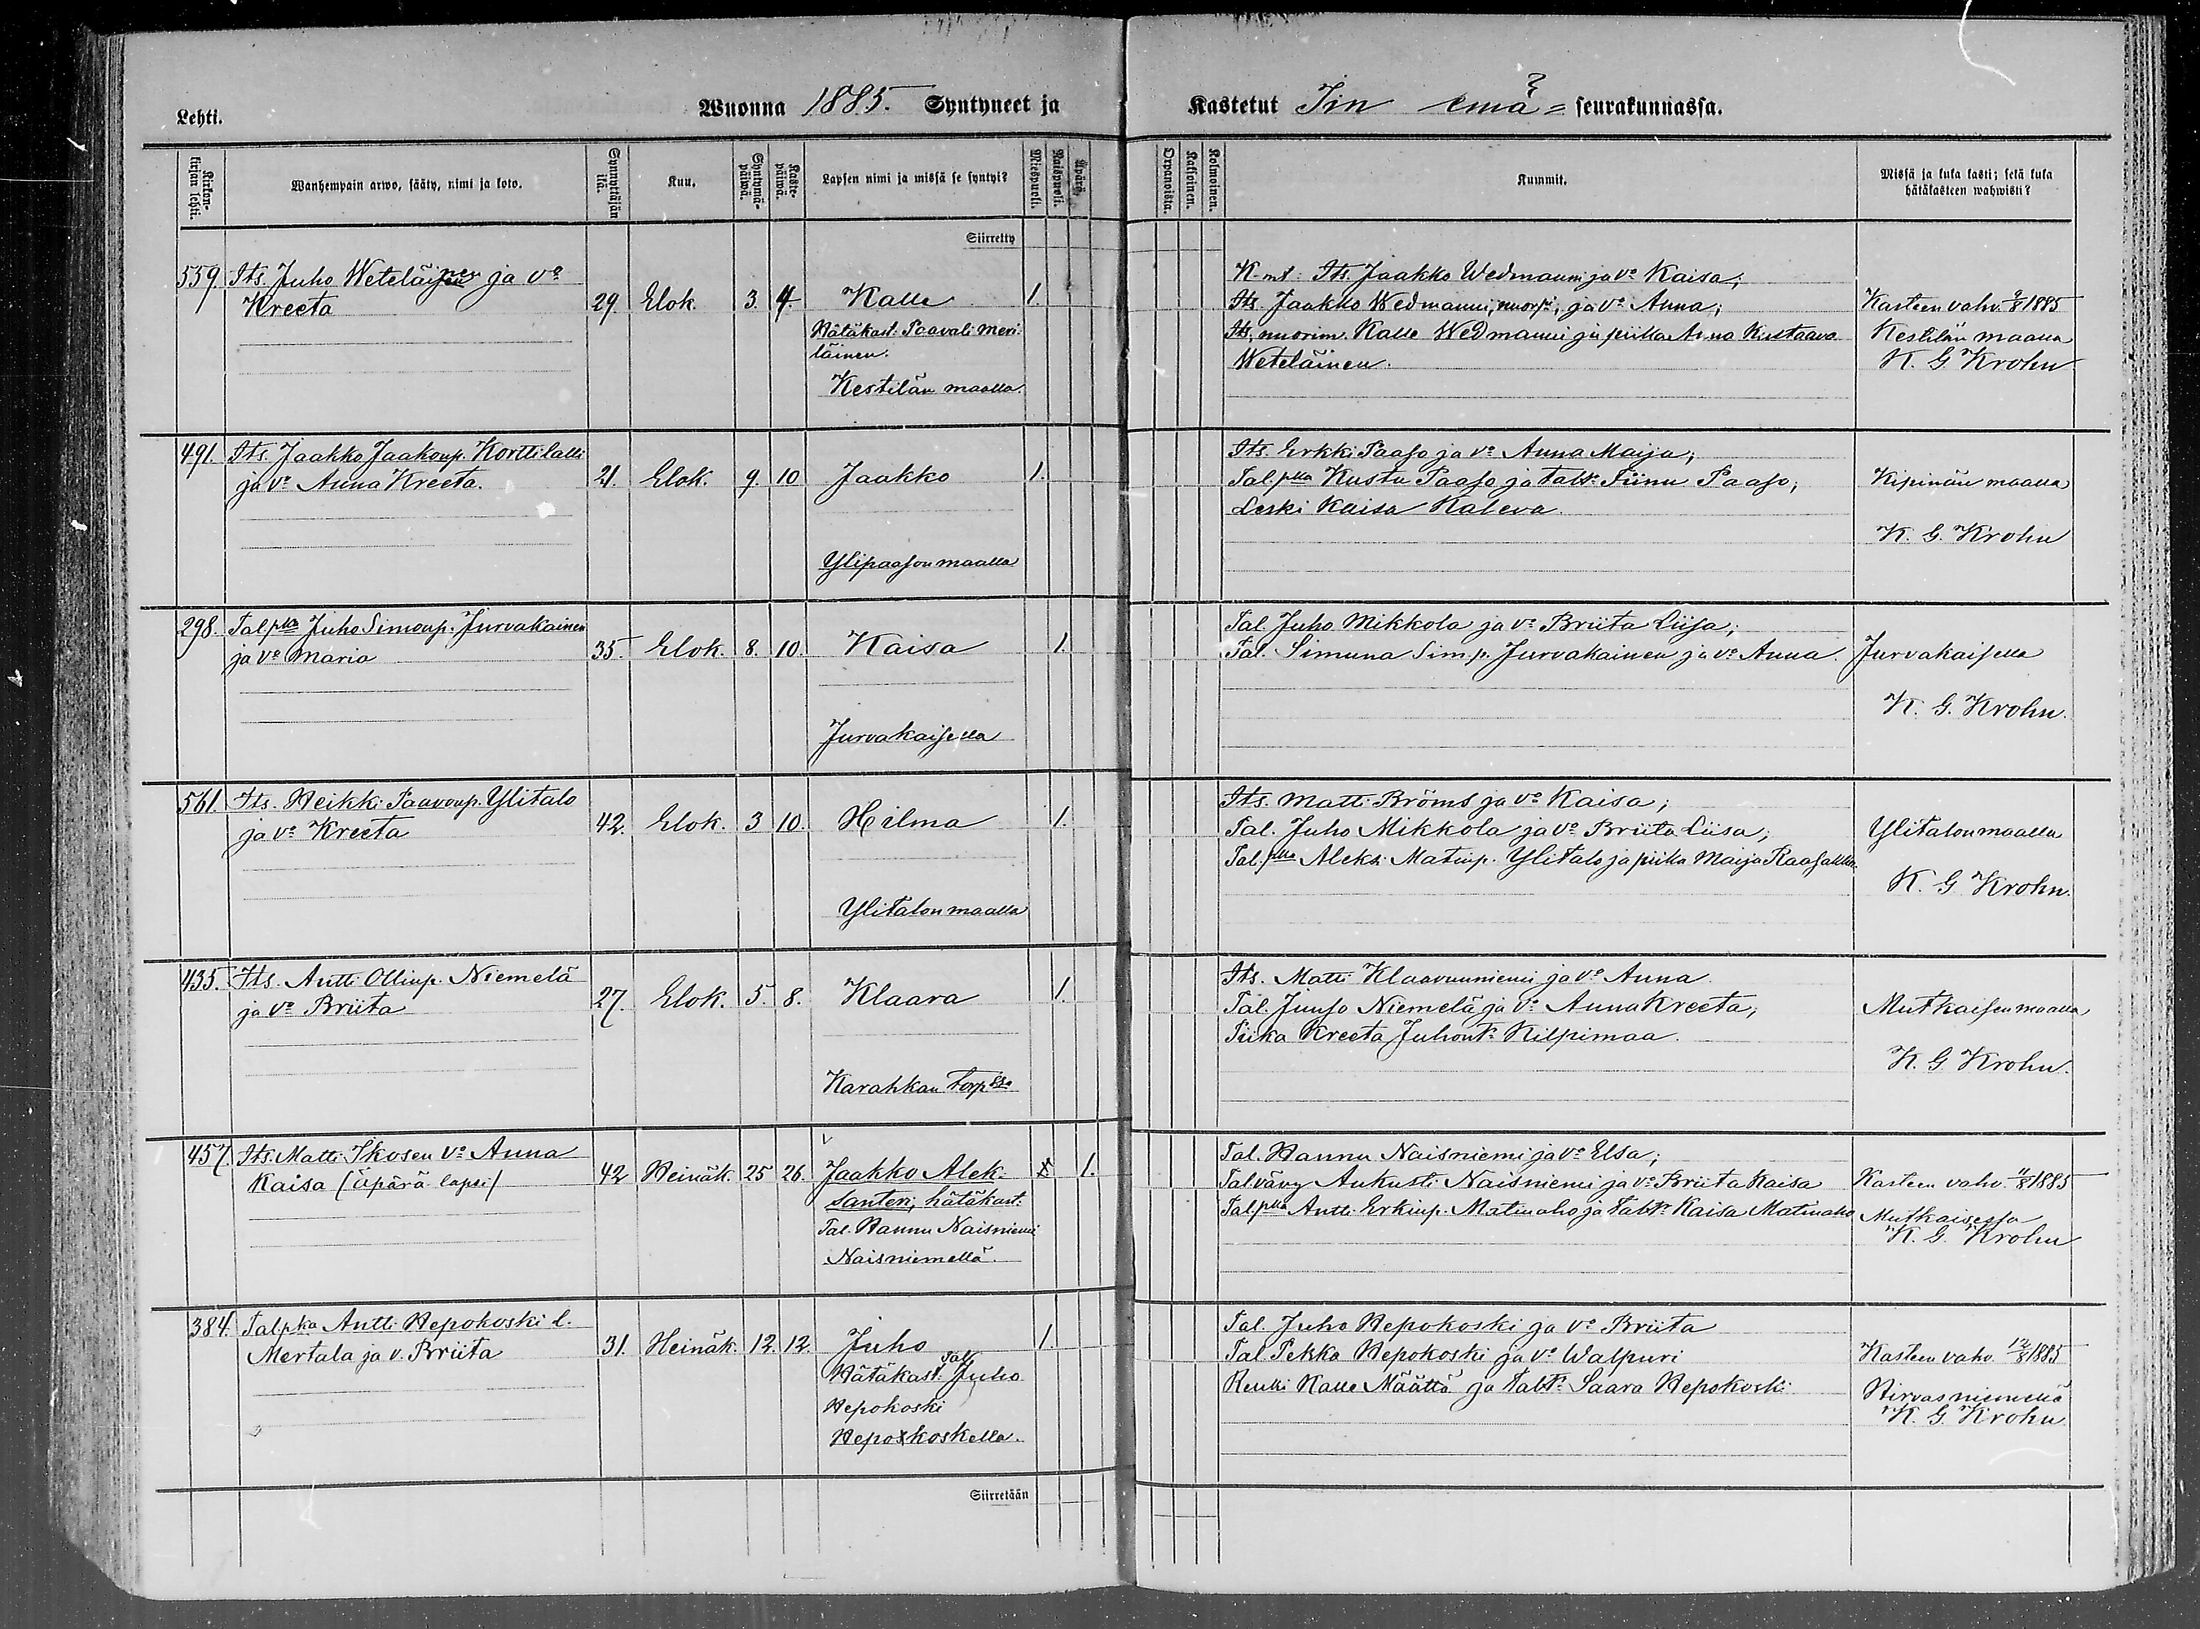 Lehti.
Wuonna 1885. Syntyneet ja
Kastetut Iin emä = seurakunnassa.
Kirkon-kirjan lehti.
Wanhempain arwo, sääty, nimi ja koto.
Synnyttäjän ikä.
Kuu.
Syntymä-päiwä.
Kaste-päiwä.
Lapsen nimi ja missä se syntyi?
Miespuoli.
Waispuoli.
Äpärä.
Orpanoista.
Kaksoinen.
Kolmoinen.
Kummit.
Missä ja kuka kasti; sekä kuka
hätäkasteen wahwisti?
Siirretty
559. Its. Juho Weteläinen ja vo
Kreeta
29. Elok. 3. 4. Kalle 1.
Hätäkast. Paavali Meri-
läinen.
Kestilän maalla.
K-mt: Its. Jaakko Wedmanni ja vo Kaisa;
Its. Jaakko Wedmanni, nuorpi, ja vo Anna;
Its. nuorim. Kalle Wedmanni ja piika Anna Kustaava
Weteläinen.
Kasteen vahv. 9/8 1885
Kestilän maalla
K. G. Krohn
491. Its. Jaakko Jaakonp. Korttilalli
ja vo Anna Kreeta.
21. Elok. 9. 10. Jaakko 1.
Ylipaason maalla
Its. Erkki Paaso ja vo Anna Maija;
Tal.pka Kustu Paaso ja talt. Fiinu Paaso;
Leski Kaisa Kaleva.
Kipinän maalla
K. G. Krohn
298. Talpka Juho Simonp. Jurvakainen
ja vo Maria
35. Elok. 8. 10. Kaisa 1.
Jurvakaisella
Tal. Juho Mikkola ja vo Briita Liisa;
Tal. Simuna Sim.p. Jurvakainen ja vo Anna.
Jurvakaisella
K. G. Krohn.
561. Its. Heikki Paavonp. Ylitalo
ja vo Kreeta
42. Elok. 3 10. Hilma 1.
Ylitalon maalla
Its. Matti Bröms ja vo Kaisa;
Tal. Juho Mikkola ja vo Briita Liisa;
Tal.pka Aleks. Matinp. Ylitalo ja piika Maija Raasakka.
Ylitalon maalla
K. G. Krohn.
435. Its. Antti Ollinp. Niemelä
ja vo Briita
27. Elok. 5. 8. Klaara 1.
Karahkan torpssa
Its. Matti Klaavunniemi ja vo Anna
Tal. Junso Niemelä ja vo Anna Kreeta;
Piika Kreeta Juhont. Kilpimaa.
Mutkaisen maalla
K. G. Krohn.
457. Its. Matti Ikosen vo Anna
Kaisa (äpärä lapsi)
42 Heinäk. 25 26. Jaakko Alek- 1.
santeri, hätäkast.
Tal. Hannu Naisniemi
Naisniemellä.
Tal. Hannu Naisniemi ja vo Elsa;
Talvävy Aukusti Naisniemi ja vo Briita Kaisa
Tal.pka Antti Erkinp. Matinaho ja talt. Kaisa Matinaho
Kasteen vahv. 11/8 1885
Mutkaisessa
K. G. Krohn
384. Talpka Antti Hepokoski l.
Mertala ja v. Briita
31. Heinäk. 12. 12. Juho 1.
Hätäkast. Tal. Juho
Hepokoski
Hepokoskella.
Tal. Juho Hepokoski ja vo Briita
Tal. Pekka Hepokoski ja vo Walpuri
Renki Kalle Määttä ja talt. Saara Hepokoski
Kasteen vahv. 12/8 1885
Hirvasniemellä
K. G. Krohn
Siirretään